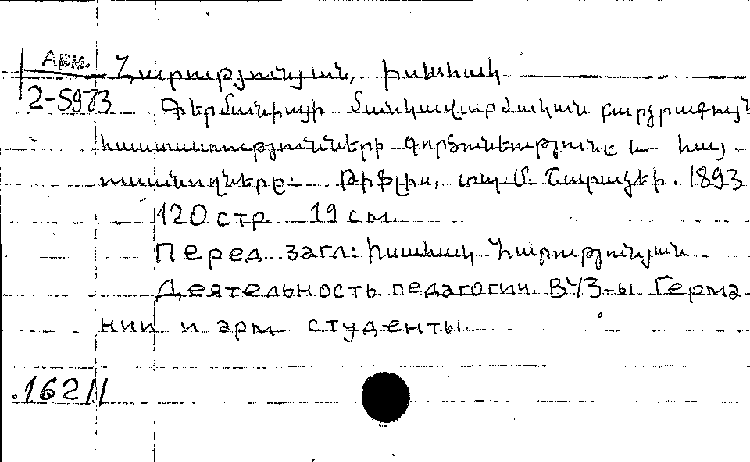 Арм. Հարությունյան, Իսահակ
2-5973 Գերմանիայի մանկավարժական բարձրագույն
հաստատությունների գործունեությունը և հայ
ուսանողները. Թիֆլիս, տպ. Մ. Շարաձեի. 1893
120 стр. 19 см.
Перед загл: Իսահակ Հարությունյան
Деятельность педагогии ВУЗ-ы Герма
нии и арм студенты
.16211